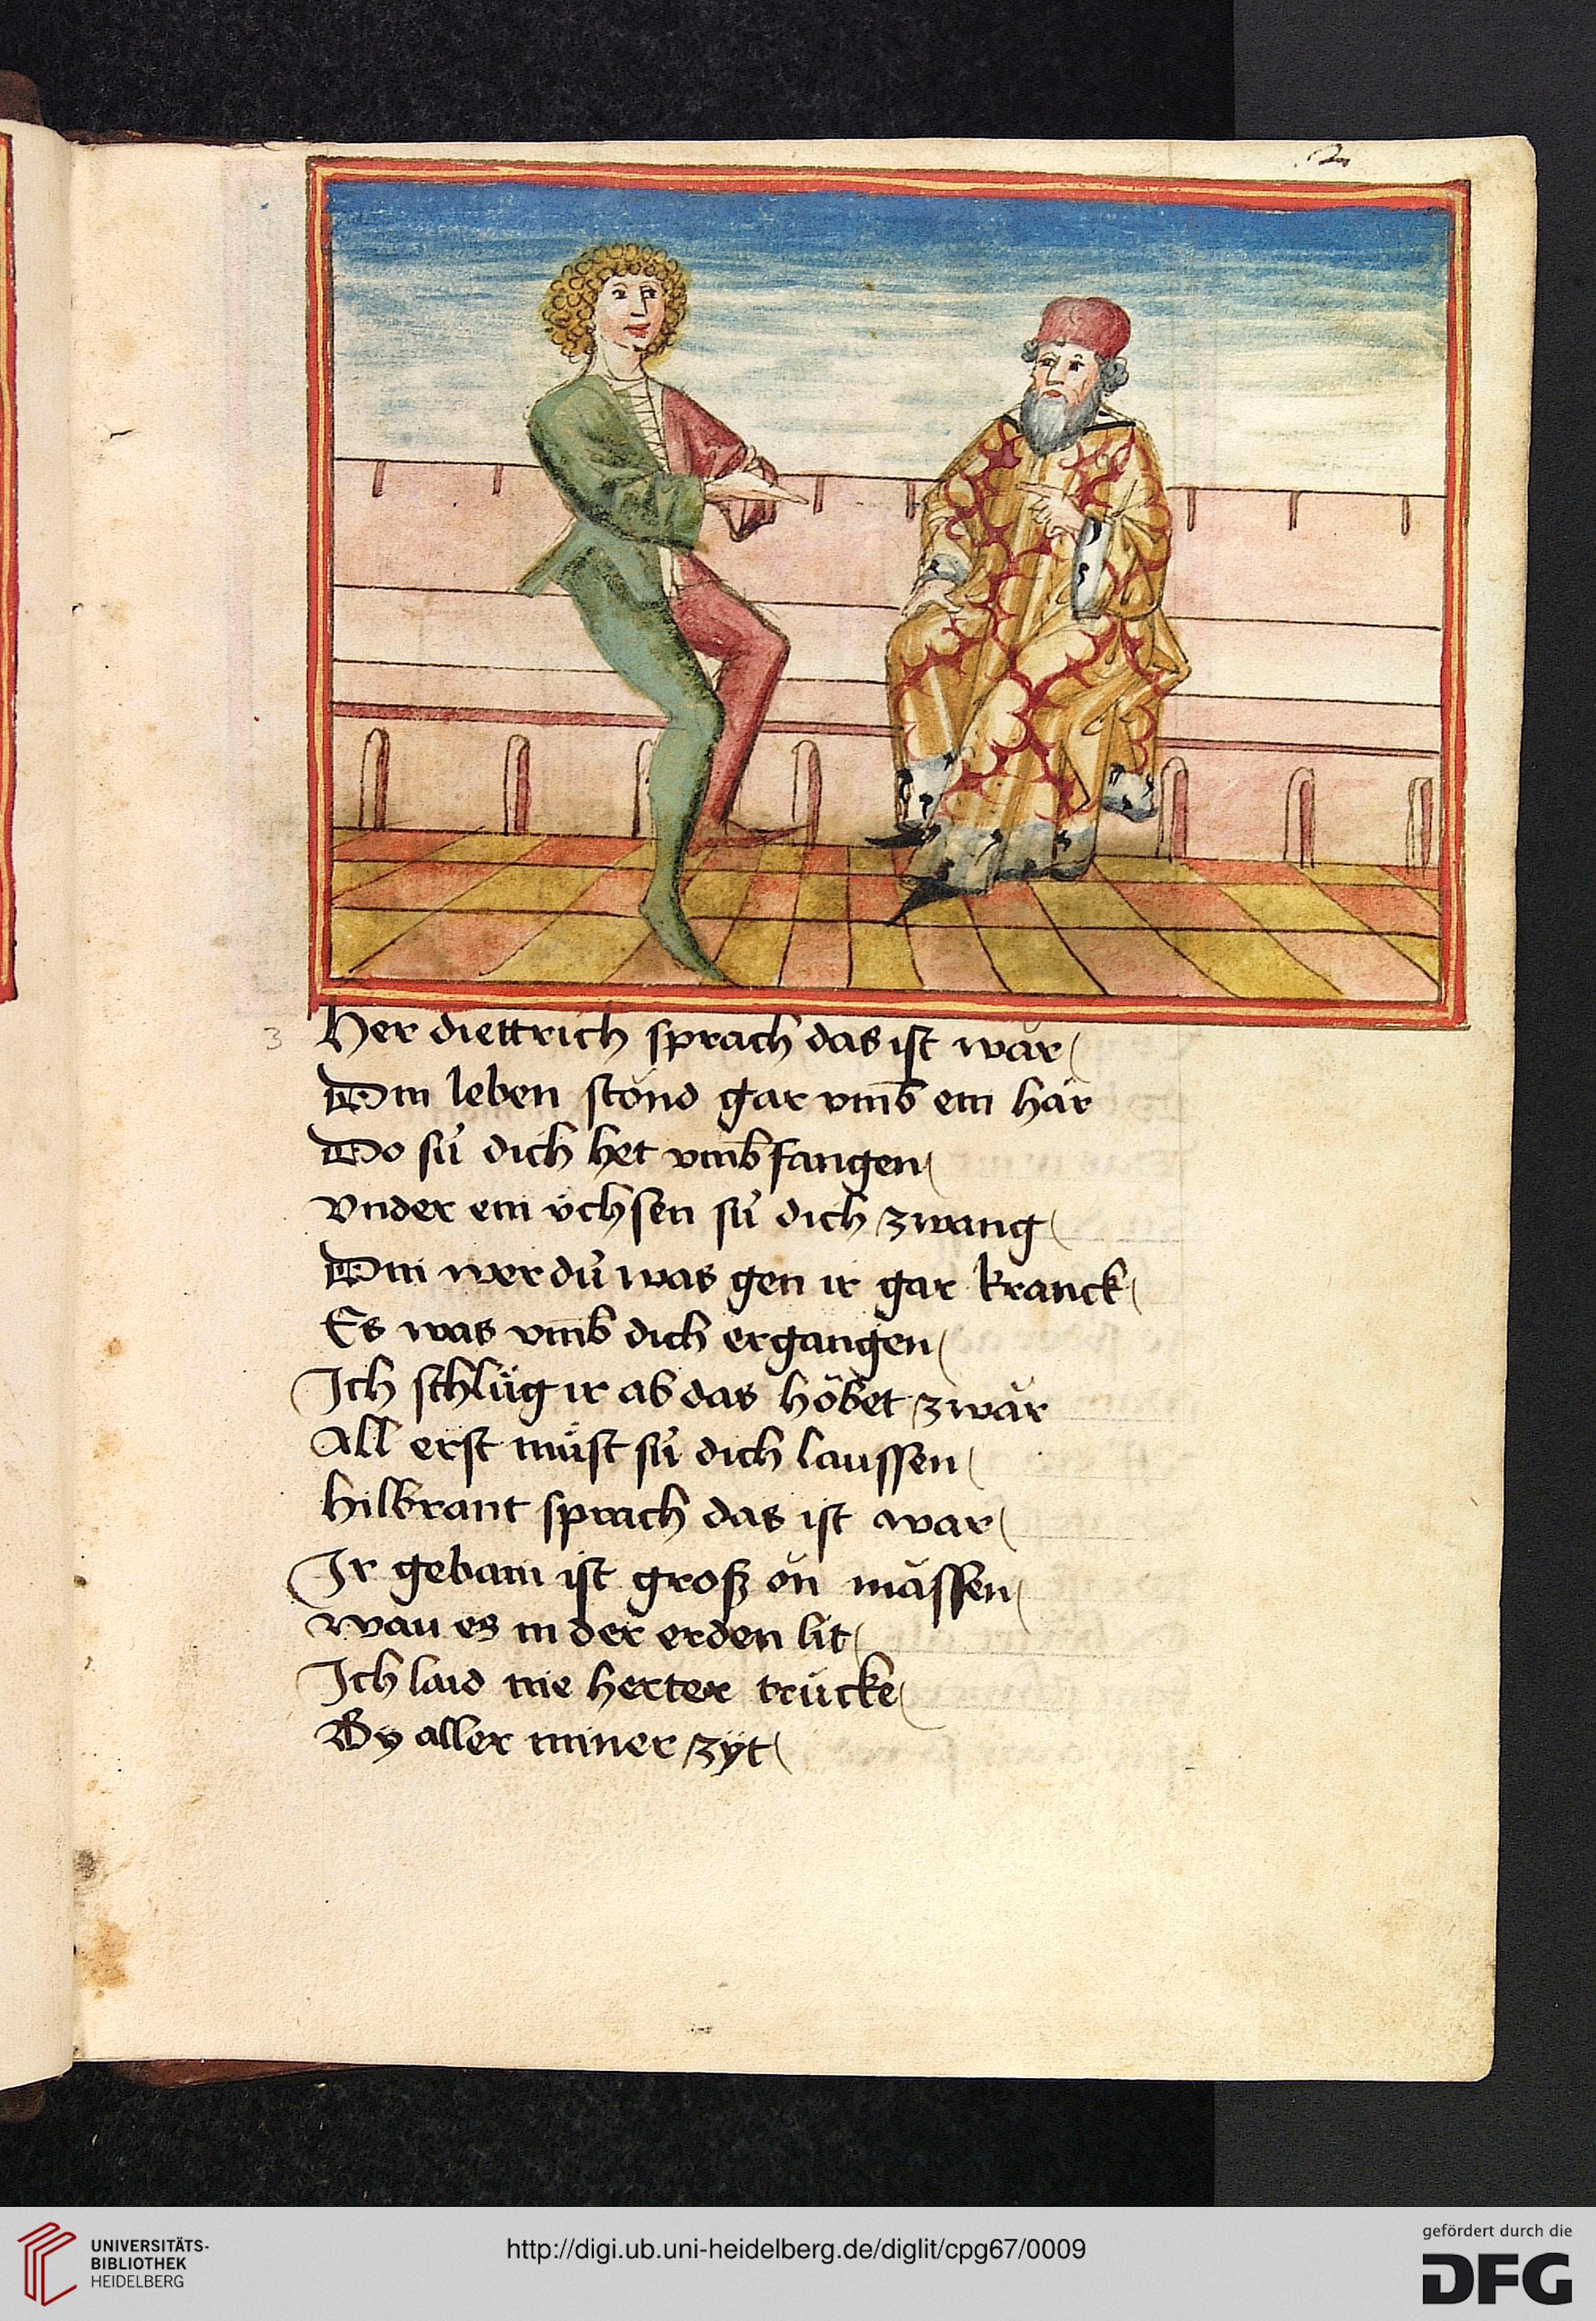 2
3
Her diettrich sprach das ist wăr
Din leben stŏnd gar vmb ein hăr
Do sú dich het vmbfangen
Vnder ein v̈chsen sú dich zwang
Din wer dú was gen ir gar kranck
Es was vmb dich ergangen
Ich schlüg ir ab das höbet zwăr
All erst müst sú dich laussen
Hilbrant sprach das ist war
Ir gebain ist grosz ŏn măssen
wau es in der erden lit
Ich laid nie herter trücke
By aller miner zÿt
UNIVERSITÄTS-
BIBLIOTHEK
HEIDELBERG
http://digi.ub.uni-heidelberg.de/diglit/cpg67/0009
gefördert durch die
DFG